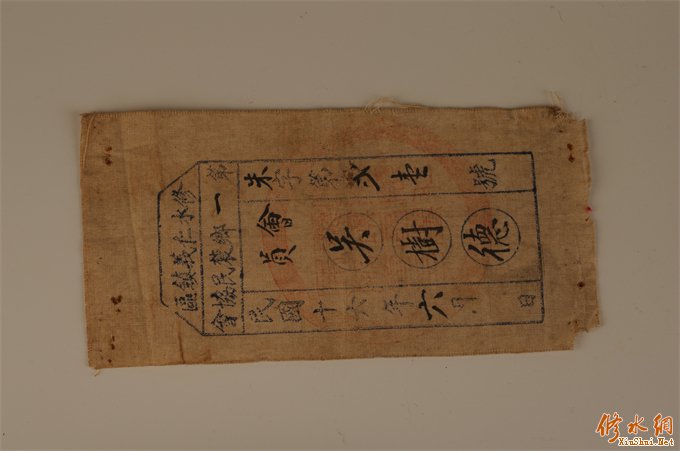 修水仁義鎮區
第一鄉農民協會
朱字第弍壹號
會員 吳樹德
民國十六年六月 日
修水網
XiuShui.Net